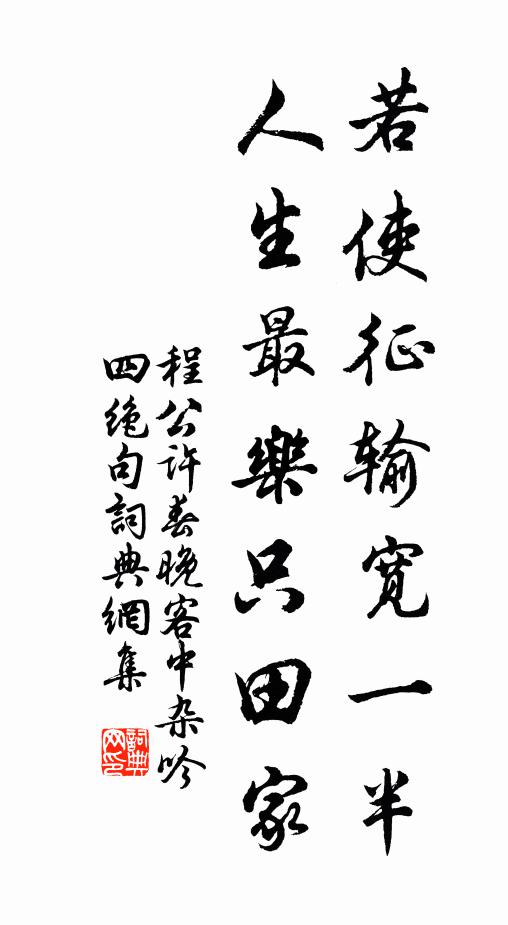 若使征输宽一半
人生最樂只田家
程公许春晚客中杂吟
四绝句詞典網集
詞典网印